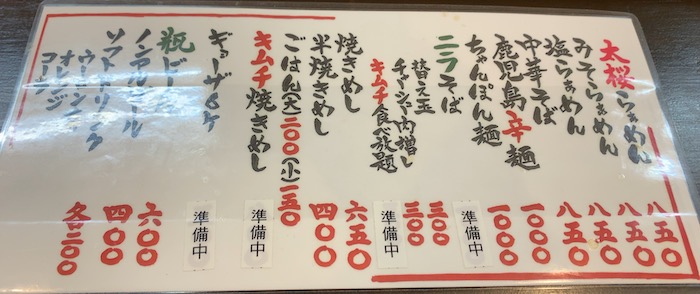 太桜らぁめん 八五〇
みそらぁめん 八五〇
塩らぁめん 八五〇
中華そば 八五〇
鹿児島辛麺 一〇〇〇
ちゃんぽん麺 一〇〇〇
ニラそば 準備中
替え玉 三〇〇
チャーシュー肉増し 三〇〇
キムチ食べ放題 準備中
焼きめし 六五〇
半焼きめし 四〇〇
ごはん(大)二〇〇(小)一五〇
キムチ焼きめし 準備中
ギョーザ6ケ 準備中
瓶ビール 六〇〇
ノンアルコール 四〇〇
ソフトドリンク 各二〇〇
ウーロン
オレンジ
コーラ